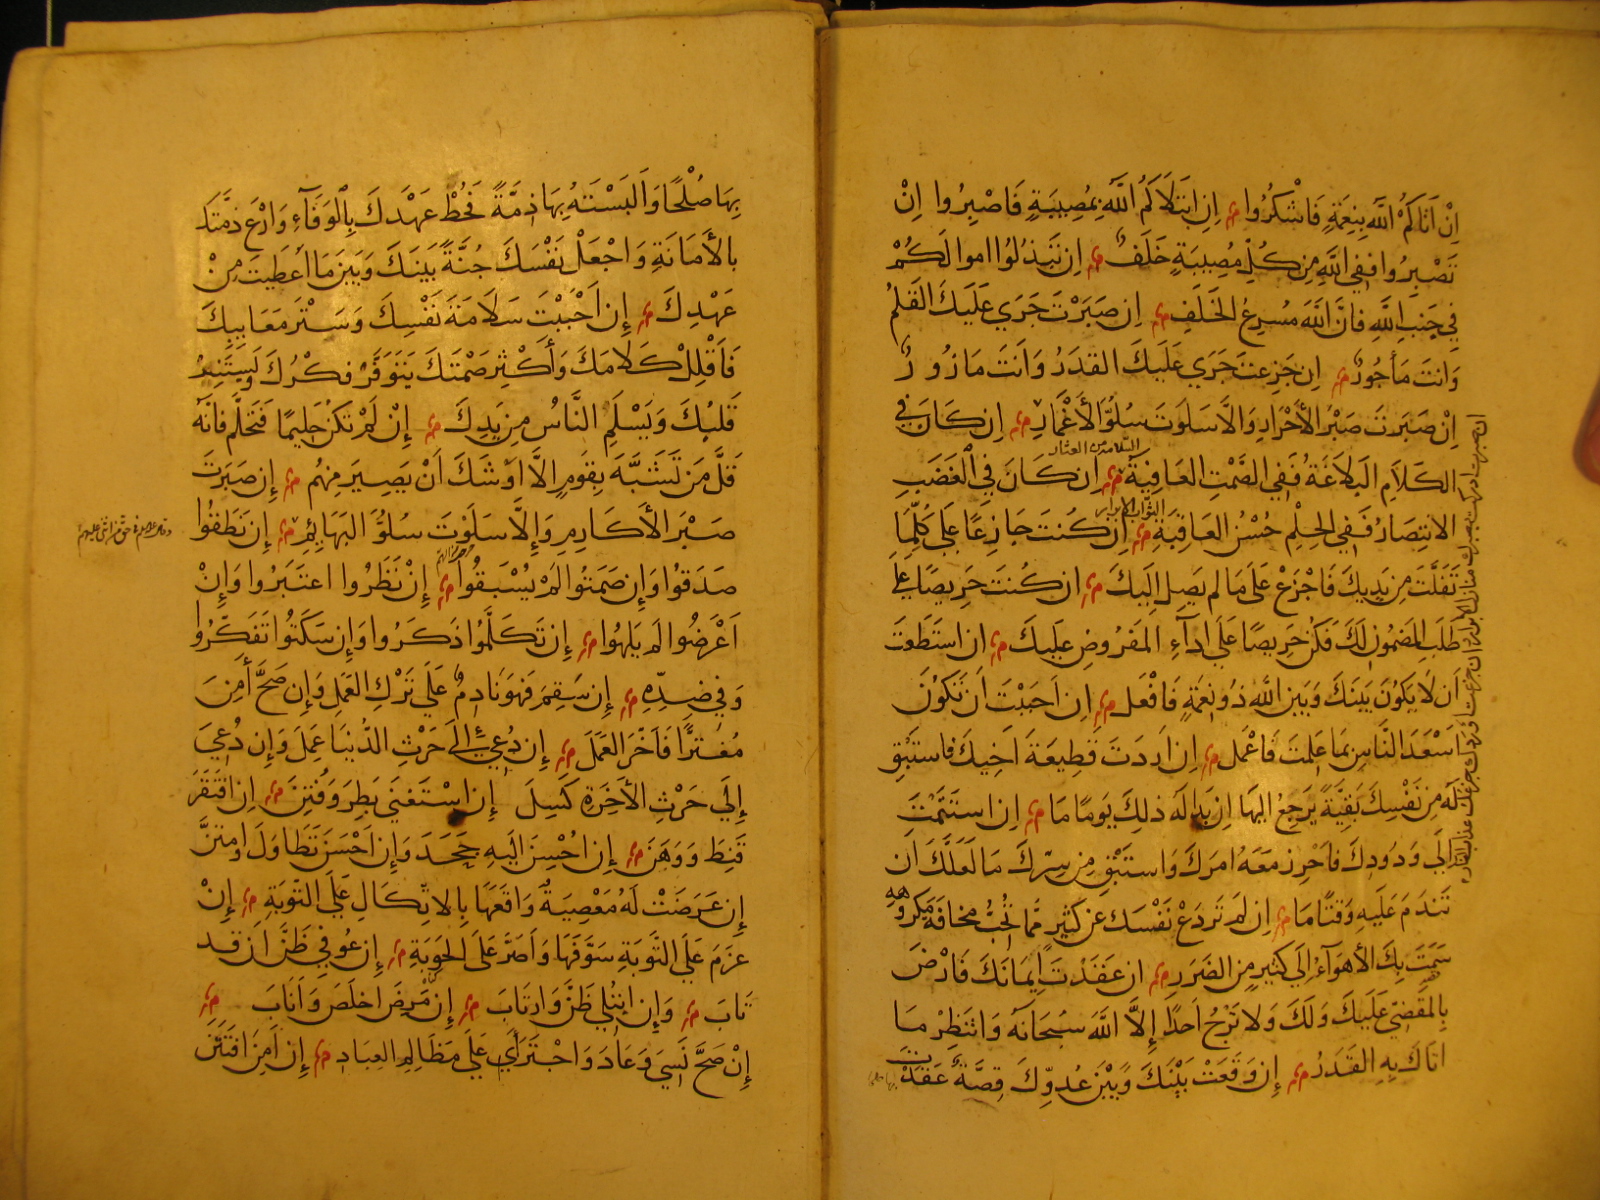 اِنْ اَتَاكُمُ اللّٰهُ بِنِعْمَةٍ فَاشْكُرُوا اِنِ ابْتَلَاكُمُ اللّٰهُ بِمُصِيبَةٍ فَاصْبِرُوا اِنْ
تَصْبِرُوا فَفِي اللّٰهِ مِنْ كُلِّ مُصِيبَةٍ خَلَفٌ اِنْ تَبْذُلُوا اموالَكُمْ
فِي جَنْبِ اللّٰهِ فَاِنَّ اللّٰهَ مُسْرِعُ الخَلَفِ اِنْ صَبَرْتَ جَرَي عَلَيْكَ القَلَمُ
وَاَنْتَ مَأجُورٌ اِنْ جَزِعْتَ جَرَي عَلَيْكَ القَدَرُ وَاَنْتَ مَازُورٌ
اِنْ صَبَرْتَ صَبْرَ الأحْرَارِ وَاِلَّا سَلَوْتَ سُلُوَّ الأَغْمَارِ اِنْ كَانَ فِي
السلامة من العثار
الكَلَامِ البَلَاغَةُ فَفِي الصَّمْتِ العَافِيَةُ اِنْ كَانَ فِي الْغَضَبِ
الانتِصَارُ فَفِي الحِلْمِ حُسْنُ العَاقِبَةِ اِنْ كُنْتَ جَازِعًا عَلَى كُلِّمَا
تَفَلَّتَ مِنْ يَدَيْكَ فَاجْزَعْ عَلَى مَا لم يَصِلْ اِلَيْكَ اِنْ كُنْتَ حَرِيصًا عَلَى
طَلَبِ المَضْمُونِ لَكَ فَكُنْ حَرِيصًا عَلَى اَدَآءِ المَفْرُوضِ عَلَيْكَ اِنِ اسْتَطَعْتَ
اَنْ لَا يَكُونَ بَيْنَكَ وَبَيْنَ اللّٰهِ ذُو نِعْمَةٍ فَافْعَل اِنْ اَحْبَبْتَ اَنْ تَكُونَ
اَسْعَدَ النَّاسِ بِمَا عَلِمْتَ فَاعْمَل اِنْ اَرَدْتَ قَطِيعَةَ اَخِيكَ فَاسْتَبْقِ
لَهُ مِنْ نَفْسِكَ بَقِيَّةً يَرْجِعُ اِلَيْهَا اِنْ بَدَا لَهُ ذٰلِكَ يَوْمًا مَا اِنِ اسْتَنَمْتَ
اِلَي وَدُودِكَ فَاَحْرِزْ مَعَهُ اَمْرَكَ وَاسْتَبْقِ مِنْ سِرِّكَ مَا لَعَلَّكَ اَنْ
تَنْدَمَ عَلَيْهِ وَقْتًا مَا اِنْ لَمْ تَرْدَعْ نَفْسَكَ عَنْ كَثِيرٍ مِمَّا تُحِبُّ مَخَافَةَ مَكْرُوهِهِ
سَمَتْ بِكَ الأَهْوَآءُ اِلَي كَثِيرٍ مِنَ الضَّرَرِ اِنْ عَقَدْتَ اِيمَانَكَ فَارْضَ
بِالمَقْضِيِّ عَلَيْكَ وَلَكَ وَلَا تَرْجُ اَحَدًا اِلَّا اللّٰهَ سُبْحَانَهُ وَانْتَظِرْ مَا
اَتَاكَ بِهِ القَدَرُ اِنْ وَقَعَتْ بَيْنَكَ وَبَيْنَ عَدُوِّكَ قِصَّةٌ عَقَدْتَ
ان صبرت ادركت بصبرك منازل الابرار ان جزعت اوردك جزعك عذاب النار
بِهَا صُلْحًا وَاَلْبَسْتَهُ بِهَا ذِمَّةً فَحُطْ عَهْدَكَ بِالْوَفَآءِ وَارْعَ ذِمَّتَكَ
بِالأَمَانَةِ وَاجْعَلْ نَفْسَكَ جُنَّةً بَيْنَكَ وَبَيْنَ مَا اَعْطَيْتَ مِنْ
عَهْدِكَ اِنْ اَحْبَبْتَ سَلَامَةَ نَفْسِكَ وَسَتْرَ مَعَايِبِكَ
فَاَقْلِلْ كَلَامَكَ وَاَكْثِرْ صَمْتَكَ يَتَوَفَّرْ فِكْرُكَ وَيَسْتَنِيرُ
قَلْبُكَ وَيَسْلَمِ النَّاسُ مِنْ يَدِكَ اِنْ لَمْ تَكُنْ حَلِيمًا فَتَحَلَّمْ فَاِنَّهُ
قَلَّ مَنْ تَشَبَّهَ بِقَوْمٍ اِلَّا اَوْشَكَ اَنْ يَصِيرَ مِنْهُم اِنْ صَبَرْتَ
صَبْرَ الأَكَارِمِ وَاِلَّا سَلَوْتَ سُلُوَّ البَهَايِمِ اِنْ نَطَقُوا
صَدَقُوا وَاِنْ صَمَتُوا لَمْ يُسْبَقُوا اِنْ نَظَرُوا اعْتَبَرُوا وَاِنْ
اَعْرَضُوا لَمْ يَلْهُوا اِنْ تَكَلَّمُوا ذَكَرُوا وَاِنْ سَكَتُوا تَفَكَّرُوا
وَفِي ضِدِّهِ اِنْ سَقِمَ فَهُوَ نَادِمٌ عَلَى تَرْكِ العَمَلِ وَاِنْ صَحَّ اَمِنَ
مُغْتَرًّا فَاَخَّرَ العَمَلَ اِنْ دُعِيَ اِلَى حَرْثِ الدُّنْيَا عَمِلَ وَاِنْ دُعِيَ
اِلَى حَرْثِ الآخِرَةِ كَسِلَ اِنِ اسْتَغْنَي بَطِرَ وَفُتِنَ اِنِ افْتَقَرَ
قَنِطَ وَوَهَنَ اِنْ اُحْسِنَ اِلَيْهِ جَحَدَ وَاِنْ اَحْسَنَ تَطَاوَلَ وامتَنَّ
اِنْ عَرَضَتْ لَهُ مَعْصِيَةٌ وَاقَعَهَا بِالاتِّكَالِ عَلَى التَّوْبَةِ اِنْ
عَزَمَ عَلَى التَّوْبَةِ سَوَّفَهَا وَاَصَرَّ عَلَى الحَوْبَةِ اِنْ عُوفِيَ ظَنَّ اَنْ قَد
تَابَ وَاِنِ ابْتُلِيَ ظَنَّ وَارْتَابَ اِنْ مَرِضَ اَخْلَصَ وَاَنَابَ
اِنْ صَحَّ نَسِيَ وَعَادَ وَاجْتَرَأَي عَلَى مَظَالِمِ العِبَادِ اِنْ اَمِنَ افْتَتَنَ